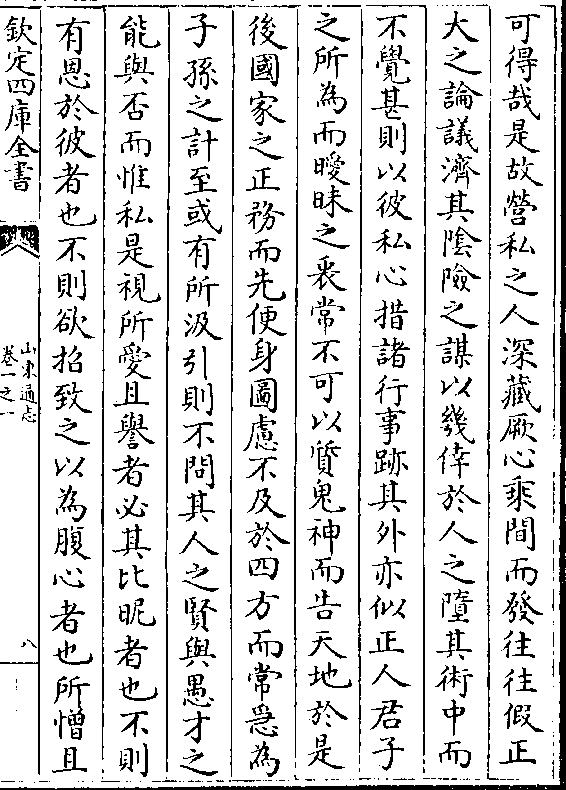 可得哉是故營私之人深藏厥心乘間而發往往假正
大之論議濟其陰險之謀以幾倖於人之墮其術中而
不覺甚則以彼私心措諸行事跡其外亦似正人君子
之所為而曖昧之衷常不可以質鬼神而告天地於是
後國家之正務而先便身圖慮不及於四方而常急為
子孫之計至或有所汲引則不問其人之賢與愚才之
能與否而惟私是視所愛且譽者必其比昵者也不則
有恩於彼者也不則欲招致之以為腹心者也所憎且
欽定四庫全書
山東通志
卷一之一
八